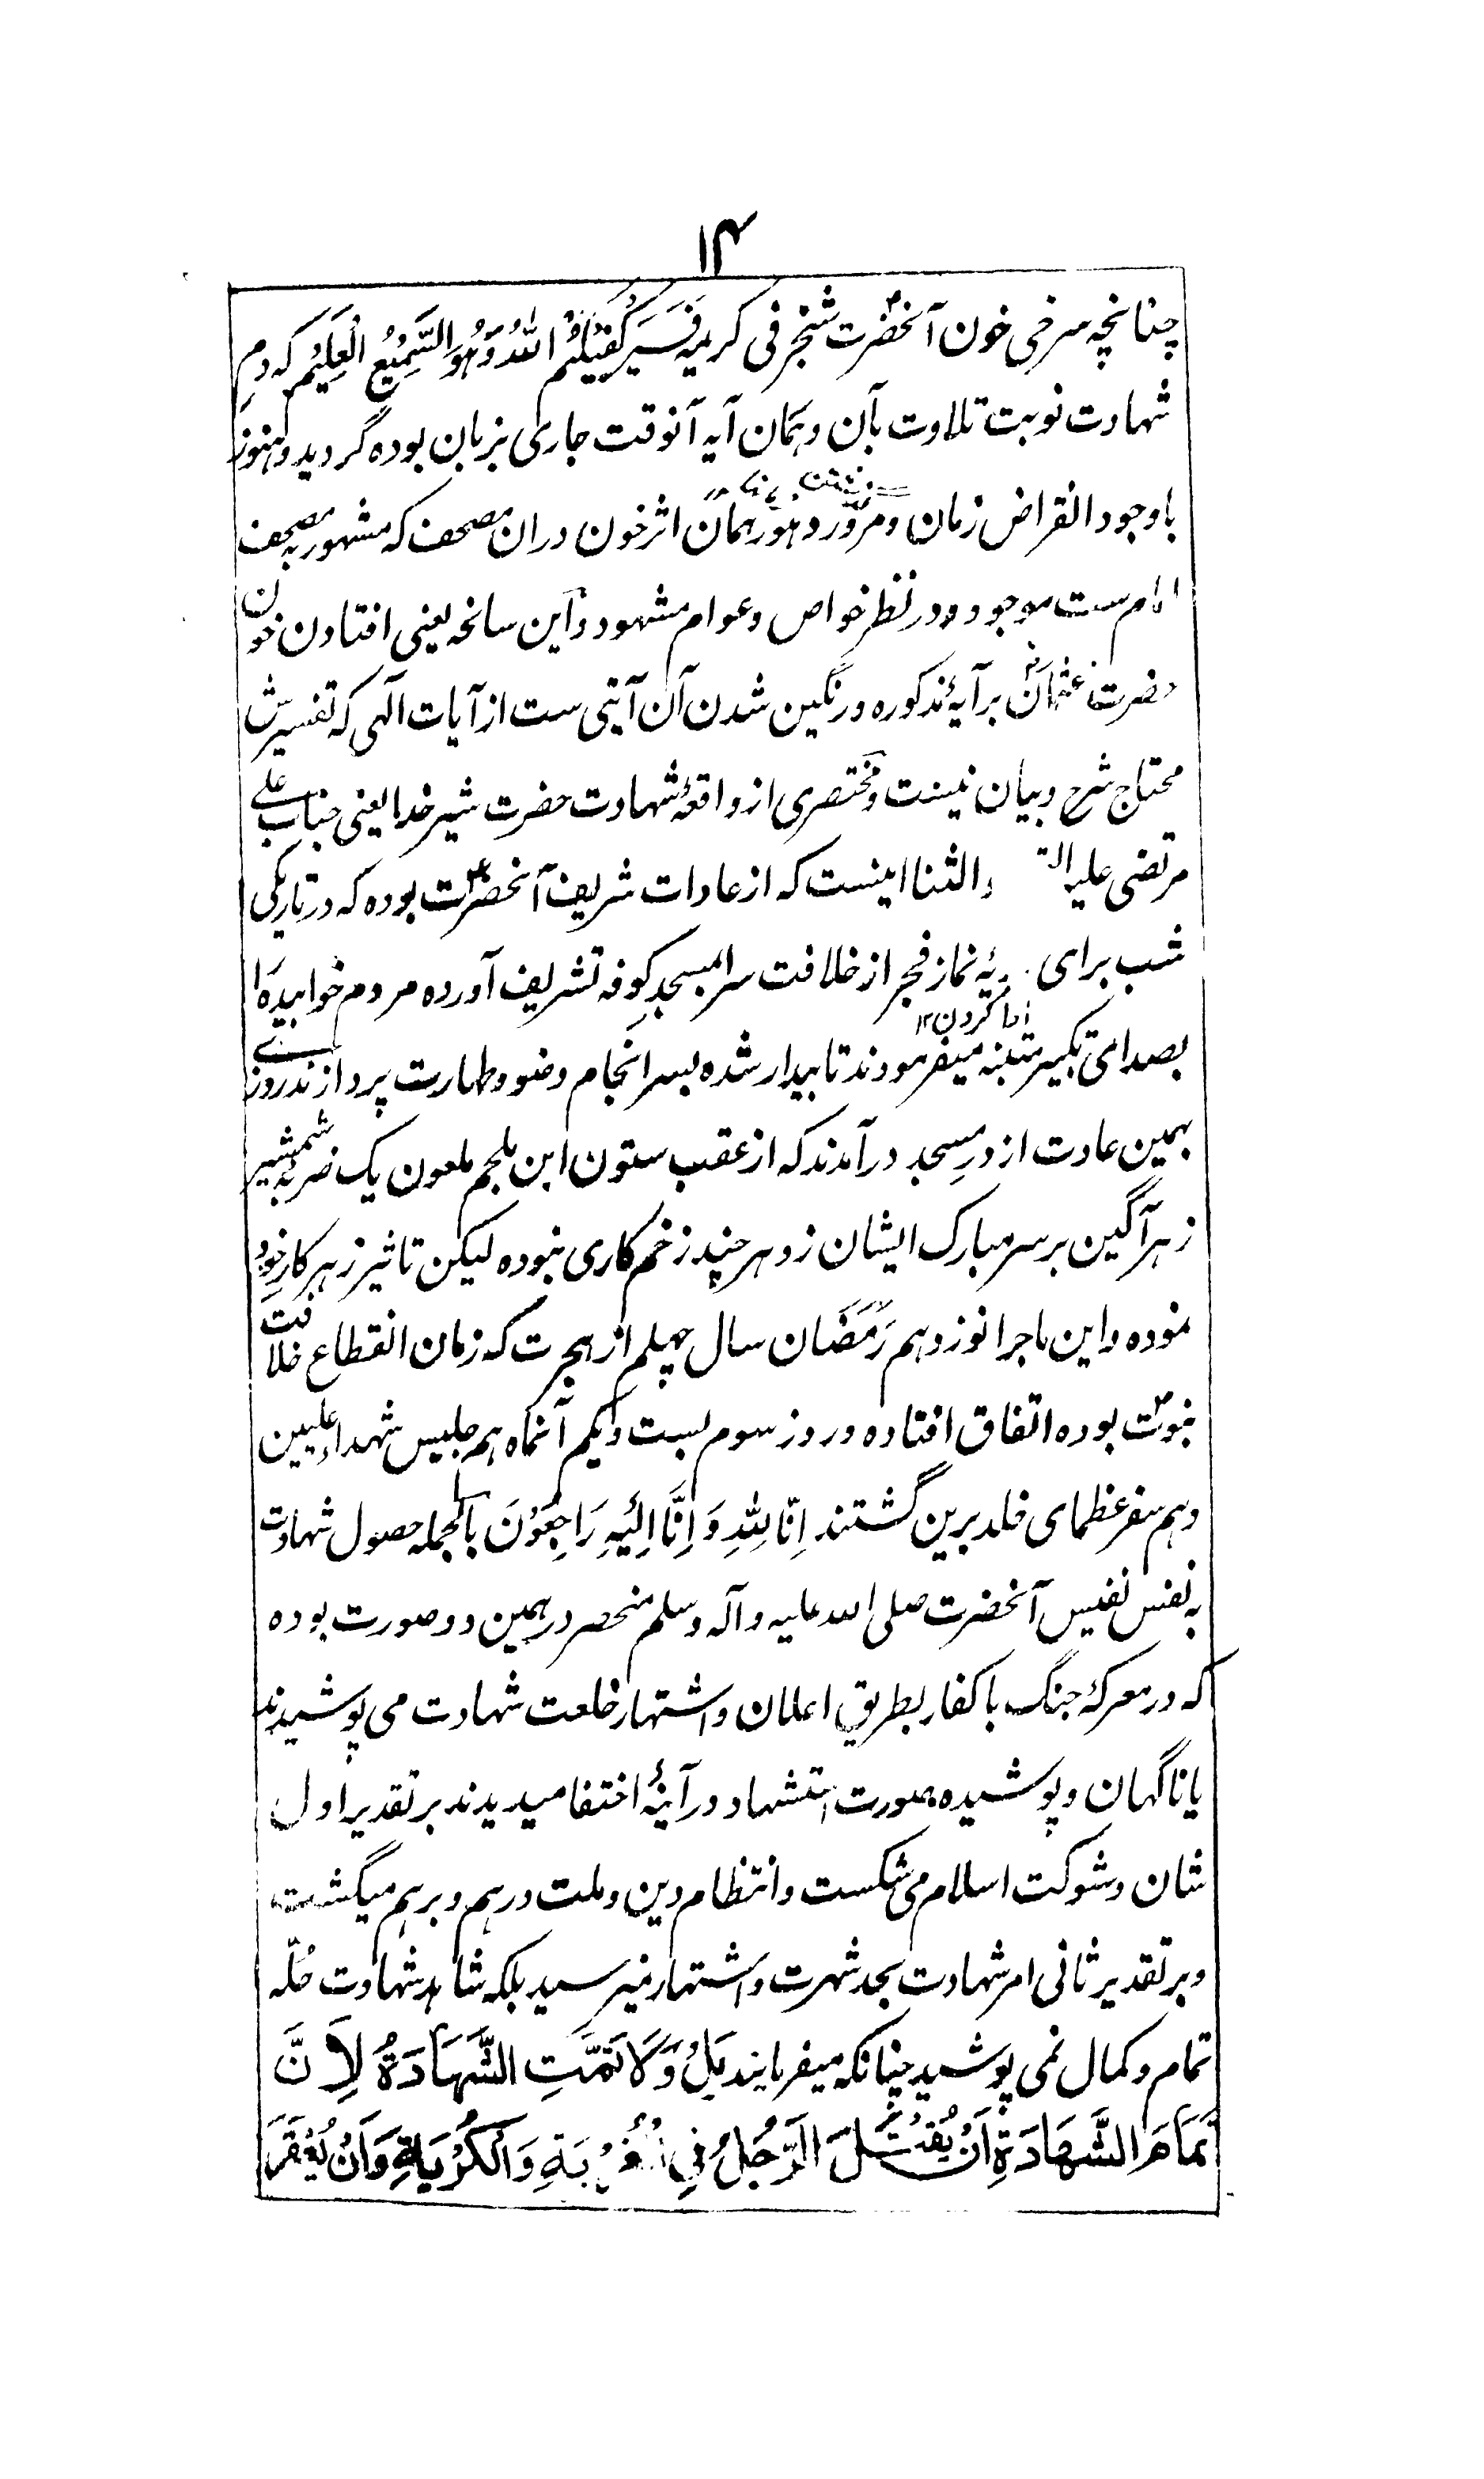 ۱۴
چنانچه سرخی خون آنحضرت شنجرفی کریمه فَسَیَکْفِیْکَهُمُ اللهُ وَهُوَ السَّمِیْعُ الْعَلِیْمُ که دمِ
شهادت نوبت تلاوت بآن وهمان آیه آنوقت جاری بزبان بوده گردید وهنوز
باوجود انقراض زمان ومرور دهور همان اثر خون دران مصحف که مشهور به مصحف
امام ست موجود ودر نظر خواص وعوام مشهود واین سانحه یعنی افتادن خون
حضرت عثمانؓ بر آیۀ مذکوره ورنگین شدن آن آیتی ست از آیات الٓهی که تفسیرش
محتاج شرح وبیان نیست ومختصری از واقعۀ شهادت حضرت شیر خدا یعنی جناب علی
مرتضی علیه والثنا اینست که از عادات شریف آنحضرت بوده که در تاریکی
شب برای نماز فجر از خلافت سرا بمسجد کوفه تشریف آورده مردم خوابیده را
ادا کردن ۱۲
بصدای تکبیر متنبه میفرمودند تا بیدار شده بسرانجام وضو وطهارت پردازند روزی
بهمین عادت از در مسجد در آمدند که از عقب ستون ابن ملجم ملعون یک ضربه شمشیر
زهر آگین بر سر مبارک ایشان زد وهر چند زخم کاری نبوده لیکن تاثیر زهر کار خود
نموده واین ماجرا نوزدهم رَمَضَان سال چهلم از هجرت که زمان انقطاع خلافت
نبوّت بوده اتفاق افتاده وروز سوم بست ویکم آنماه هم جلیس شهداء علیین
وهم سفر عظمای خلد برین گشتند اِنَّا لِلّٰهِ وَ اِنَّا اِلَیْهِ رَاجِعُوْنَ بالجمله حصول شهادت
به نفس نفیس آنحضرت صلی الله علیه وآله وسلم منحصر در همین دو صورت بوده
که در معرکۀ جنگ با کفار بطریق اعلان واشتهار خلعت شهادت می پوشیدند
یا ناگهان وپوشیده بصورت استشهاد در آئینۀ اختفا میدیدند بر تقدیر اول
شان وشوکت اسلام می شکست وانتظام دین وملت درهم وبرهم میگشت
وبر تقدیر ثانی امر شهادت بحد شهرت واشتهار نمیرسید بلکه شاهد شهادت حُلّه
تمام وکمال نمی پوشید چنانکه میفرمایند بَلْ وَلَا تَمَّتِ الشَّهَادَةُ لِاَنَّ
تَمَامَ الشَّهَادَةِ اَنْ یُقْتَلَ الرَّجُلُ فِی الْغُرْبَةِ وَالْکُرْبَةِ وَاَنْ یُعْقَرَ